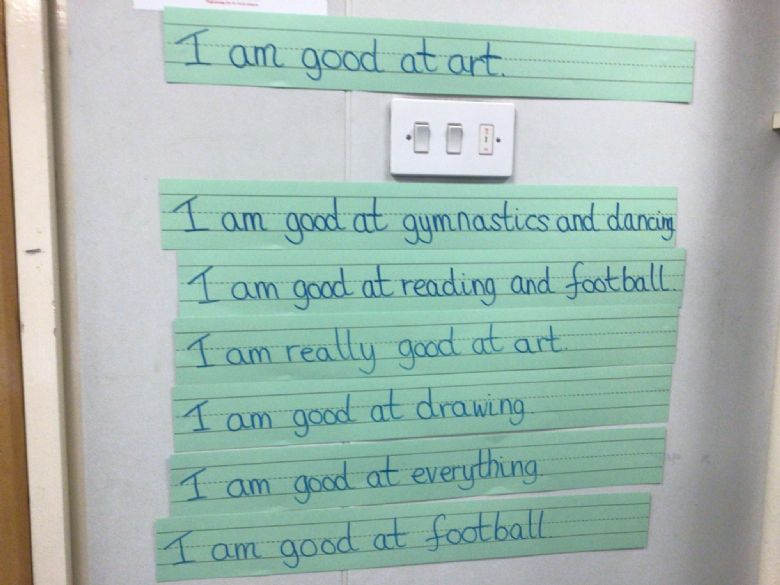 I am good at art.
I am good at gymnastics and dancing
I am good at reading and football.
I am really good at art.
I am good at drawing.
I am good at everything
I am good at football